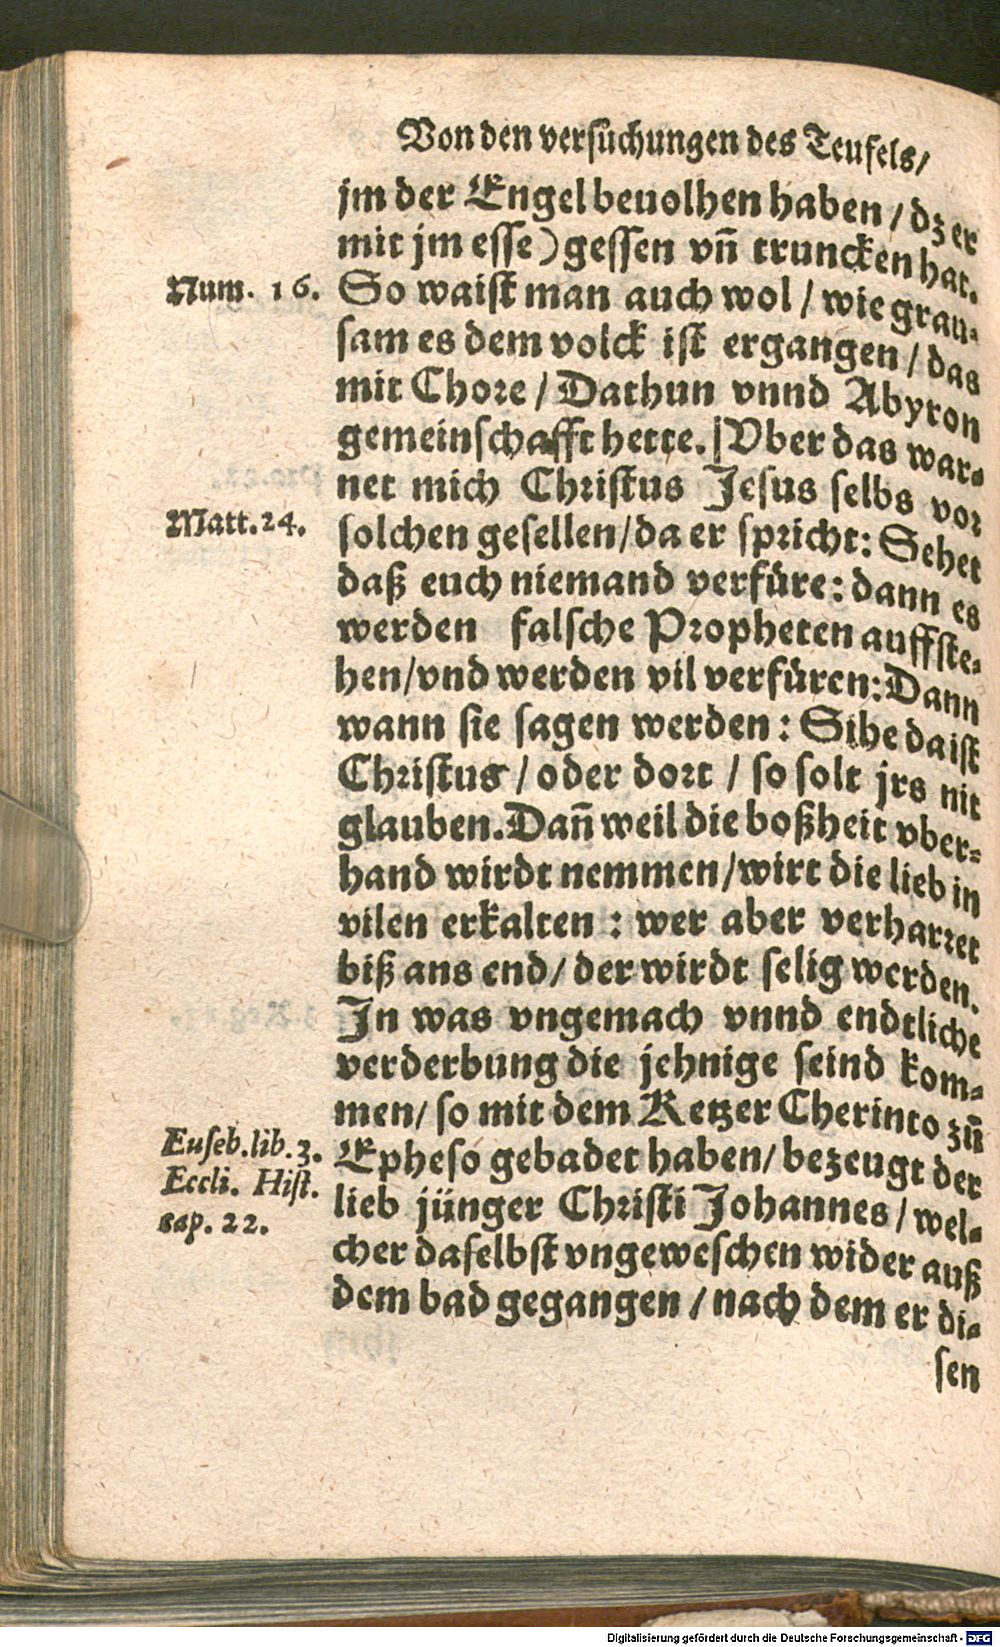 Von den versuͦchungen des Teufels/
jm der Engel beuolhen haben / dz er
mit jm esse) gessen vn̄ truncken hat.
Num. 16.
So waist man auch wol / wie grau-
sam es dem volck ist ergangen / das
mit Chore / Dathun vnnd Abyron
gemeinschafft hette. Vber das war-
net mich Christus Jesus selbs vor
Matt. 24.
solchen gesellen/da er spricht: Sehet
daß euch niemand verfüre: dann es
werden falsche Propheten auffste-
hen/vnd werden vil verfüren: Dann
wann sie sagen werden : Sihe da ist
Christus / oder dort / so solt jrs nit
glauben. Dan̄ weil die boßheit vber-
hand wirdt nemmen/wirt die lieb in
vilen erkalten : wer aber verharret
biß ans end/ der wirdt selig werden.
In was vngemach vnnd endtliche
verderbung die jehnige seind kom-
men/ so mit dem Ketzer Cherinto zuͦ
Euseb. lib. 3.
Eccli. Hist.
cap. 22.
Epheso gebadet haben/ bezeugt der
lieb jünger Christi Johannes / wel-
cher daselbst vngeweschen wider auß
dem bad gegangen / nach dem er di-
sen
Digitalisierung gefördert durch die Deutsche Forschungsgemeinschaft - DFG